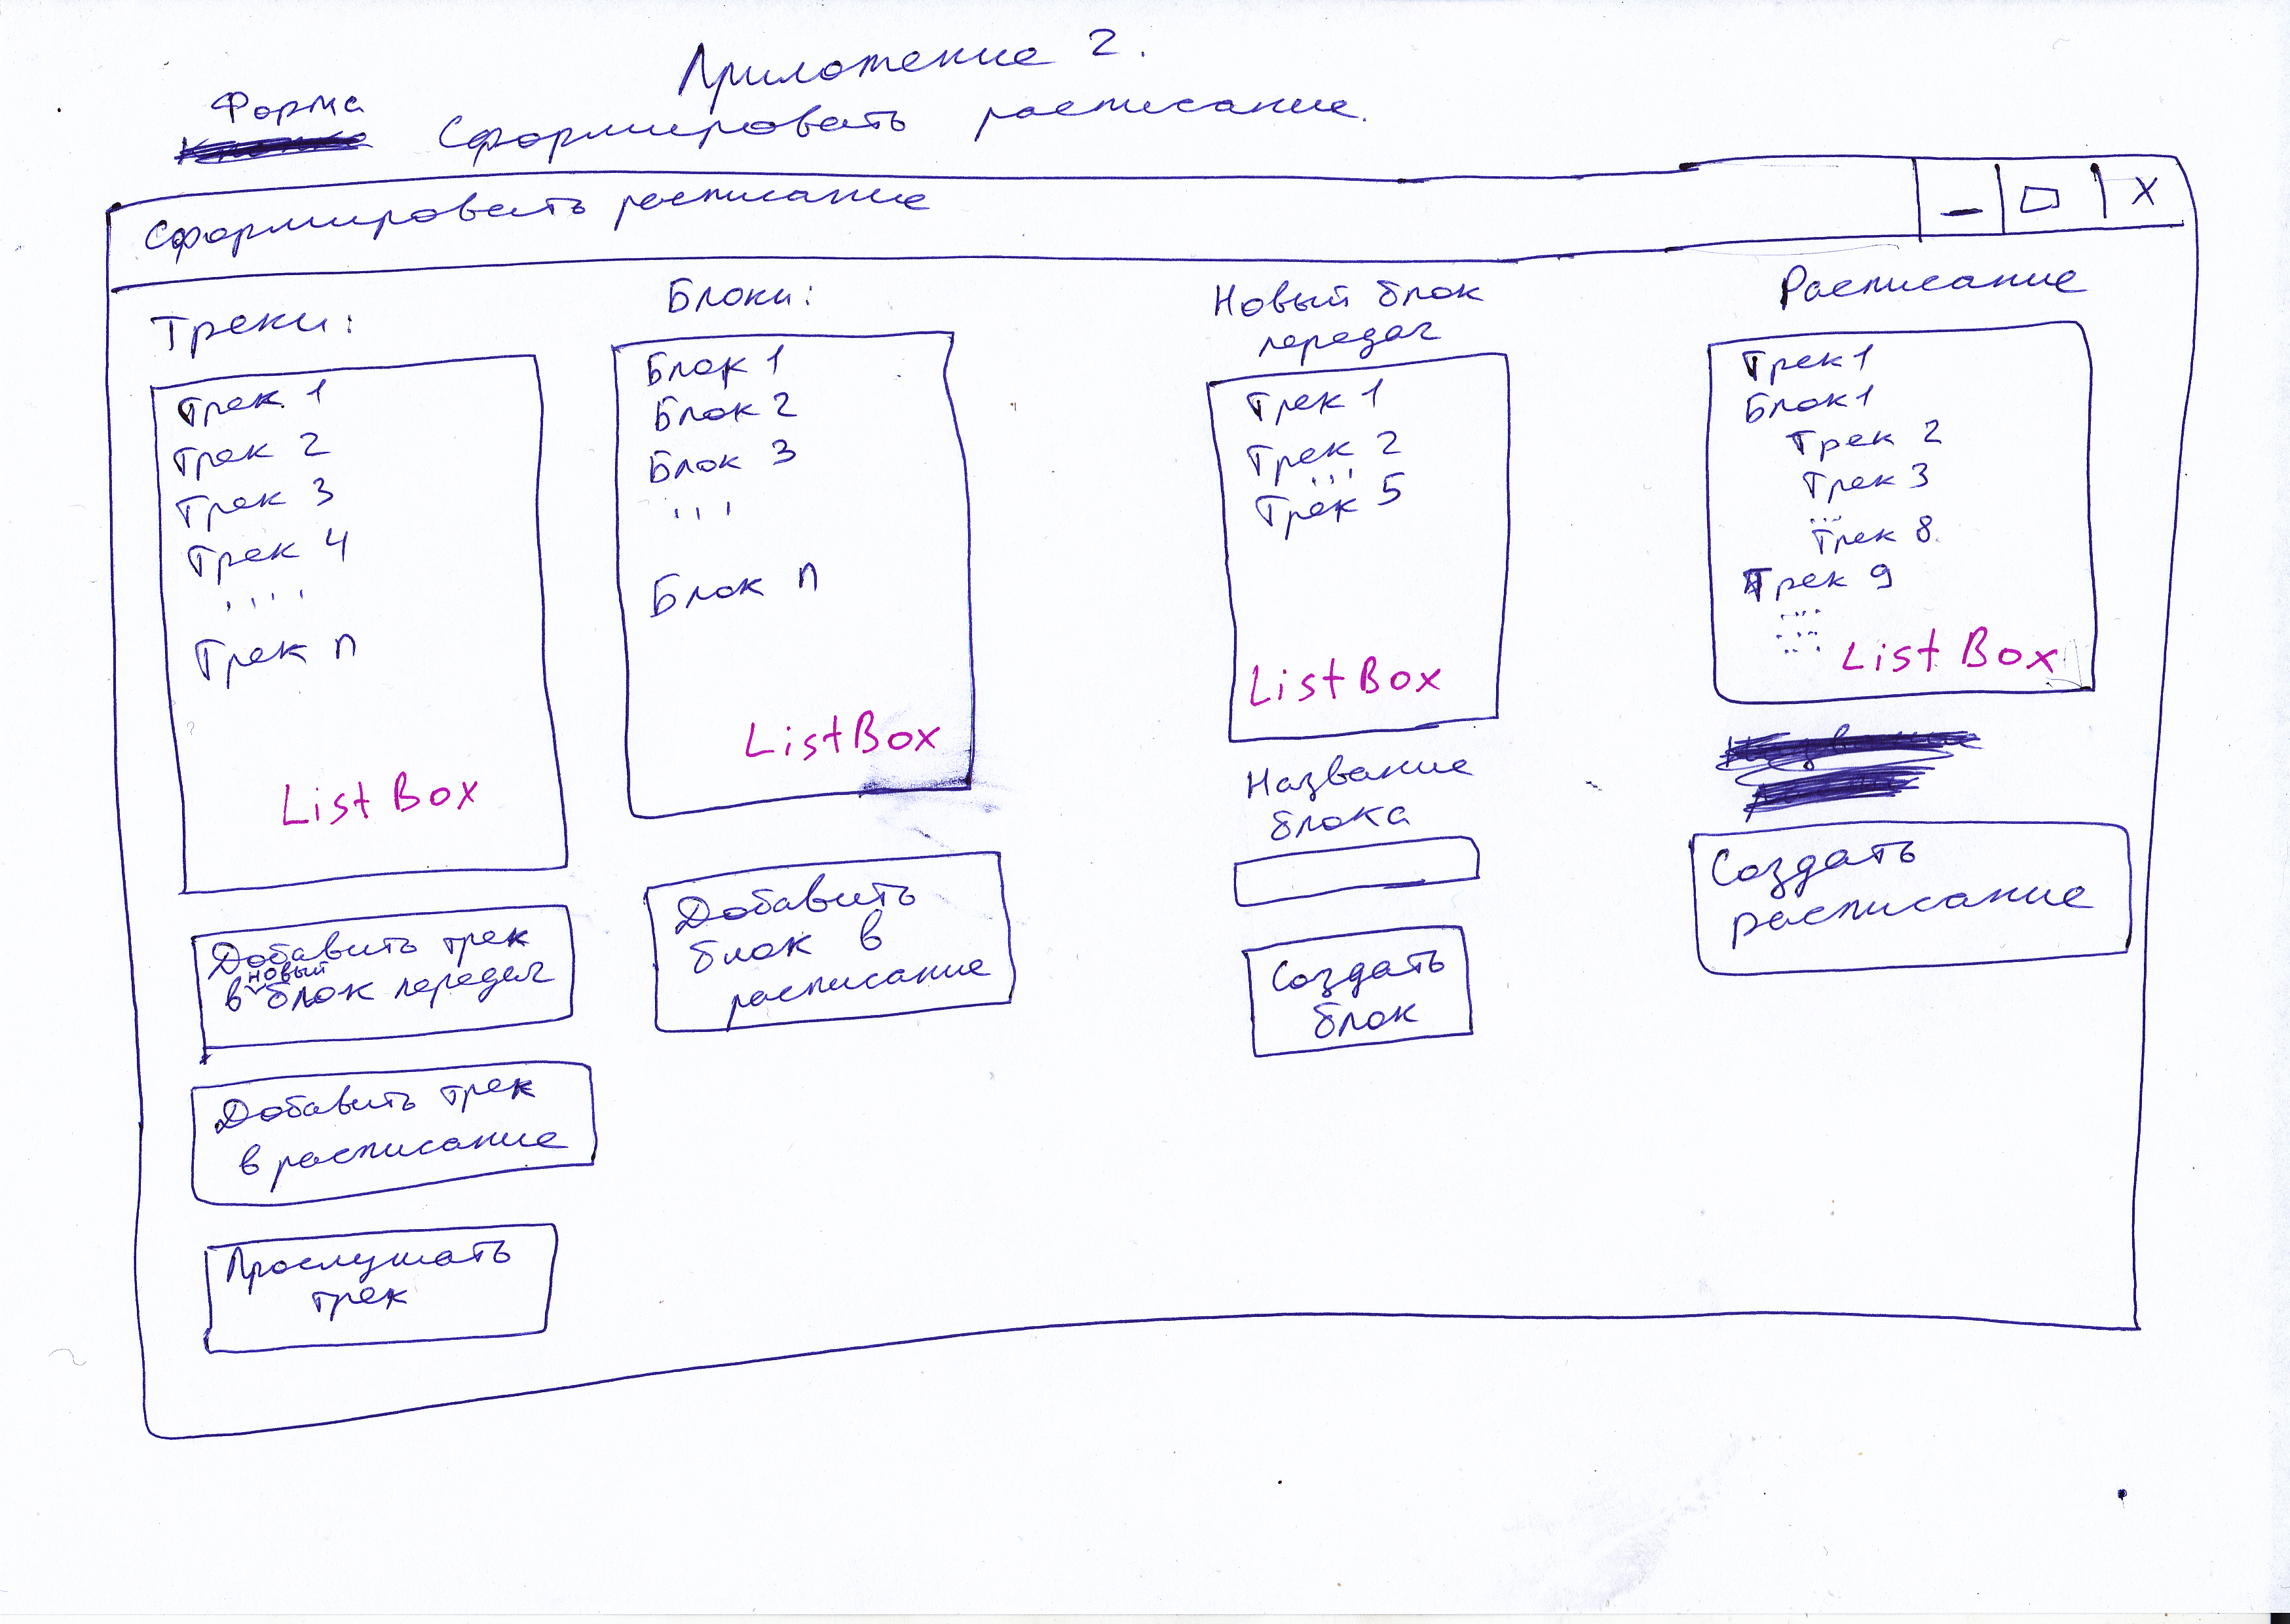 Приложение 2.
Форма
Сформировать расписание.
Сформировать расписание
_ □ X
Треки:
Трек 1
Трек 2
Трек 3
Трек 4
....
Трек n
ListBox
Добавить трек
в новый блок передач
Добавить трек
в расписание
Прослушать
трек
Блоки:
Блок 1
Блок 2
Блок 3
...
Блок n
ListBox
Добавить
блок в
расписание
Новый блок
передач
Трек 1
Трек 2
...
Трек 5
ListBox
Название
блока
Создать
блок
Расписание
Трек 1
Блок 1
Трек 2
Трек 3
...
Трек 8
Трек 9
...
...
ListBox
Создать
расписание